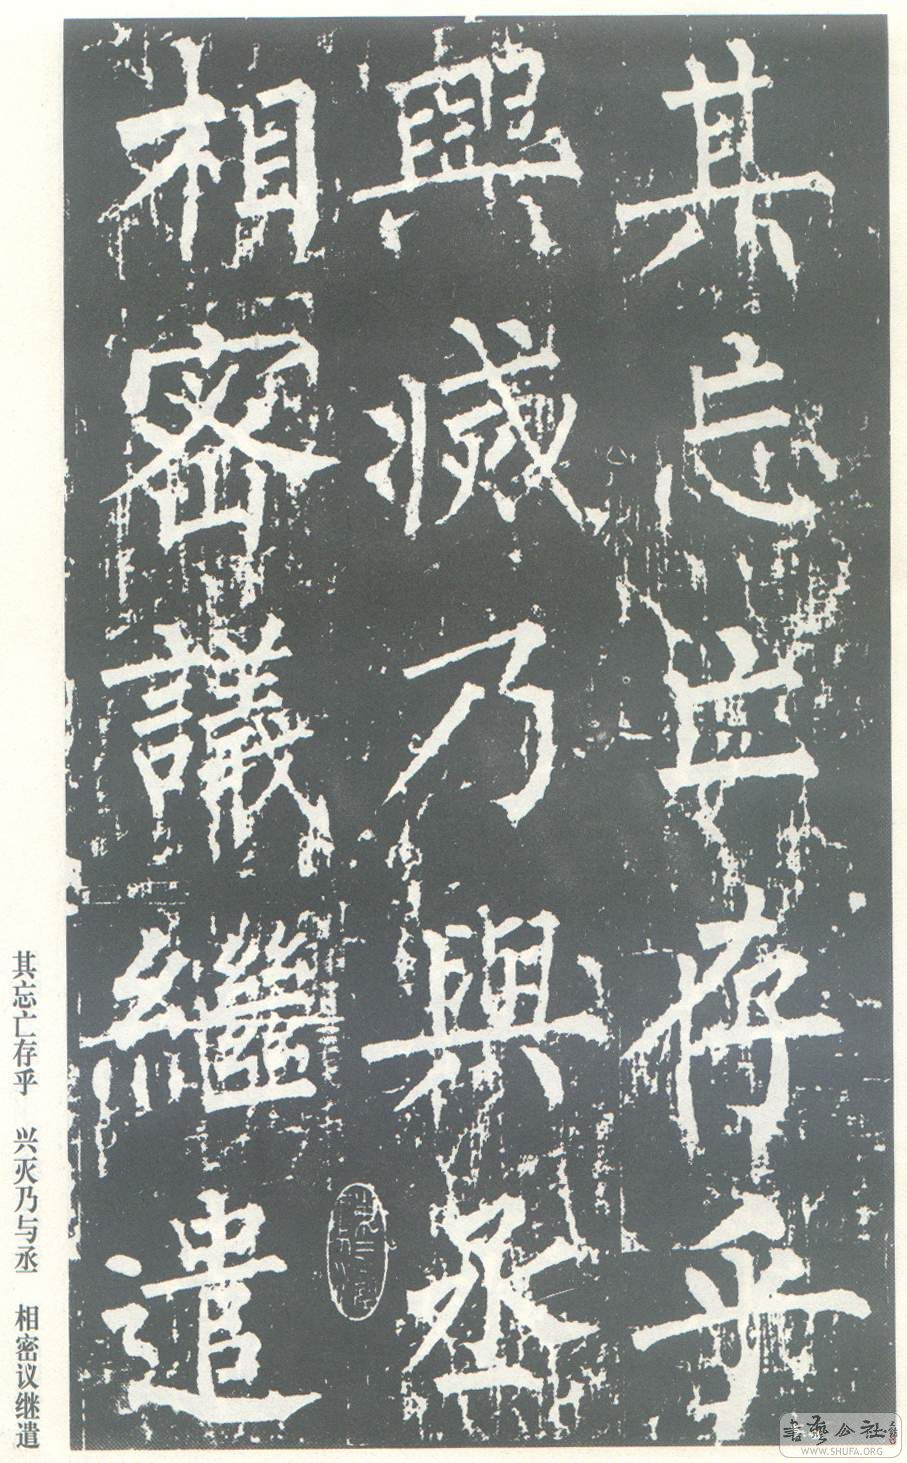 其忘亡存乎
興滅乃與丞
相密議繼遣
其忘亡存乎 兴灭乃与丞 相密议继遣
書藝公社
WWW.SHUFA.ORG